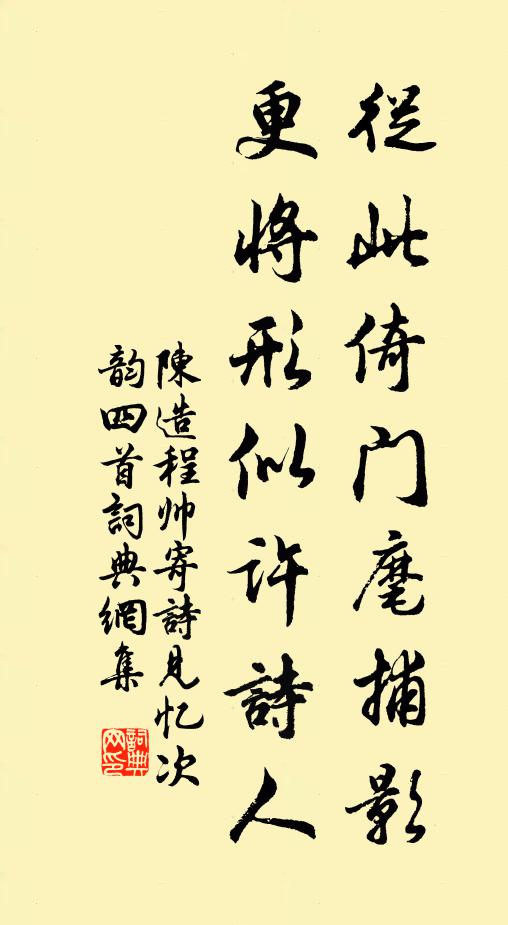 從此倚門麾捕影
更將形似許詩人
陳造程帅寄詩見忆次
韵四首詞典網集
詞典
网印